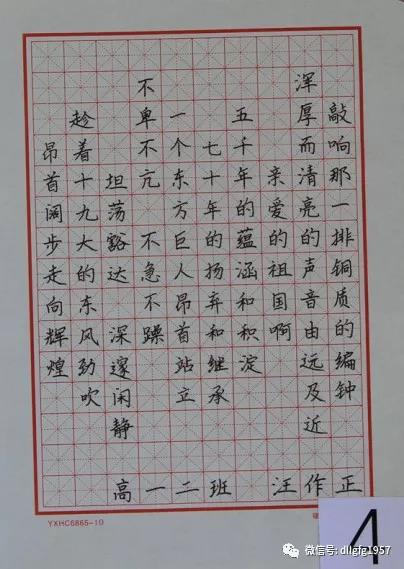 敲响那一排铜质的编钟
浑厚而清亮的声音由远及近
亲爱的祖国啊
五千年的蕴涵和积淀
七十年的扬弃和继承
一个东方巨人昂首站立
不卑不亢 不急不躁
坦荡豁达 深邃闲静
趁着十九大的东风劲吹
昂首阔步走向辉煌
高一二班 汪作正
YXHC6865-10
4
微信号: dllgfg1957